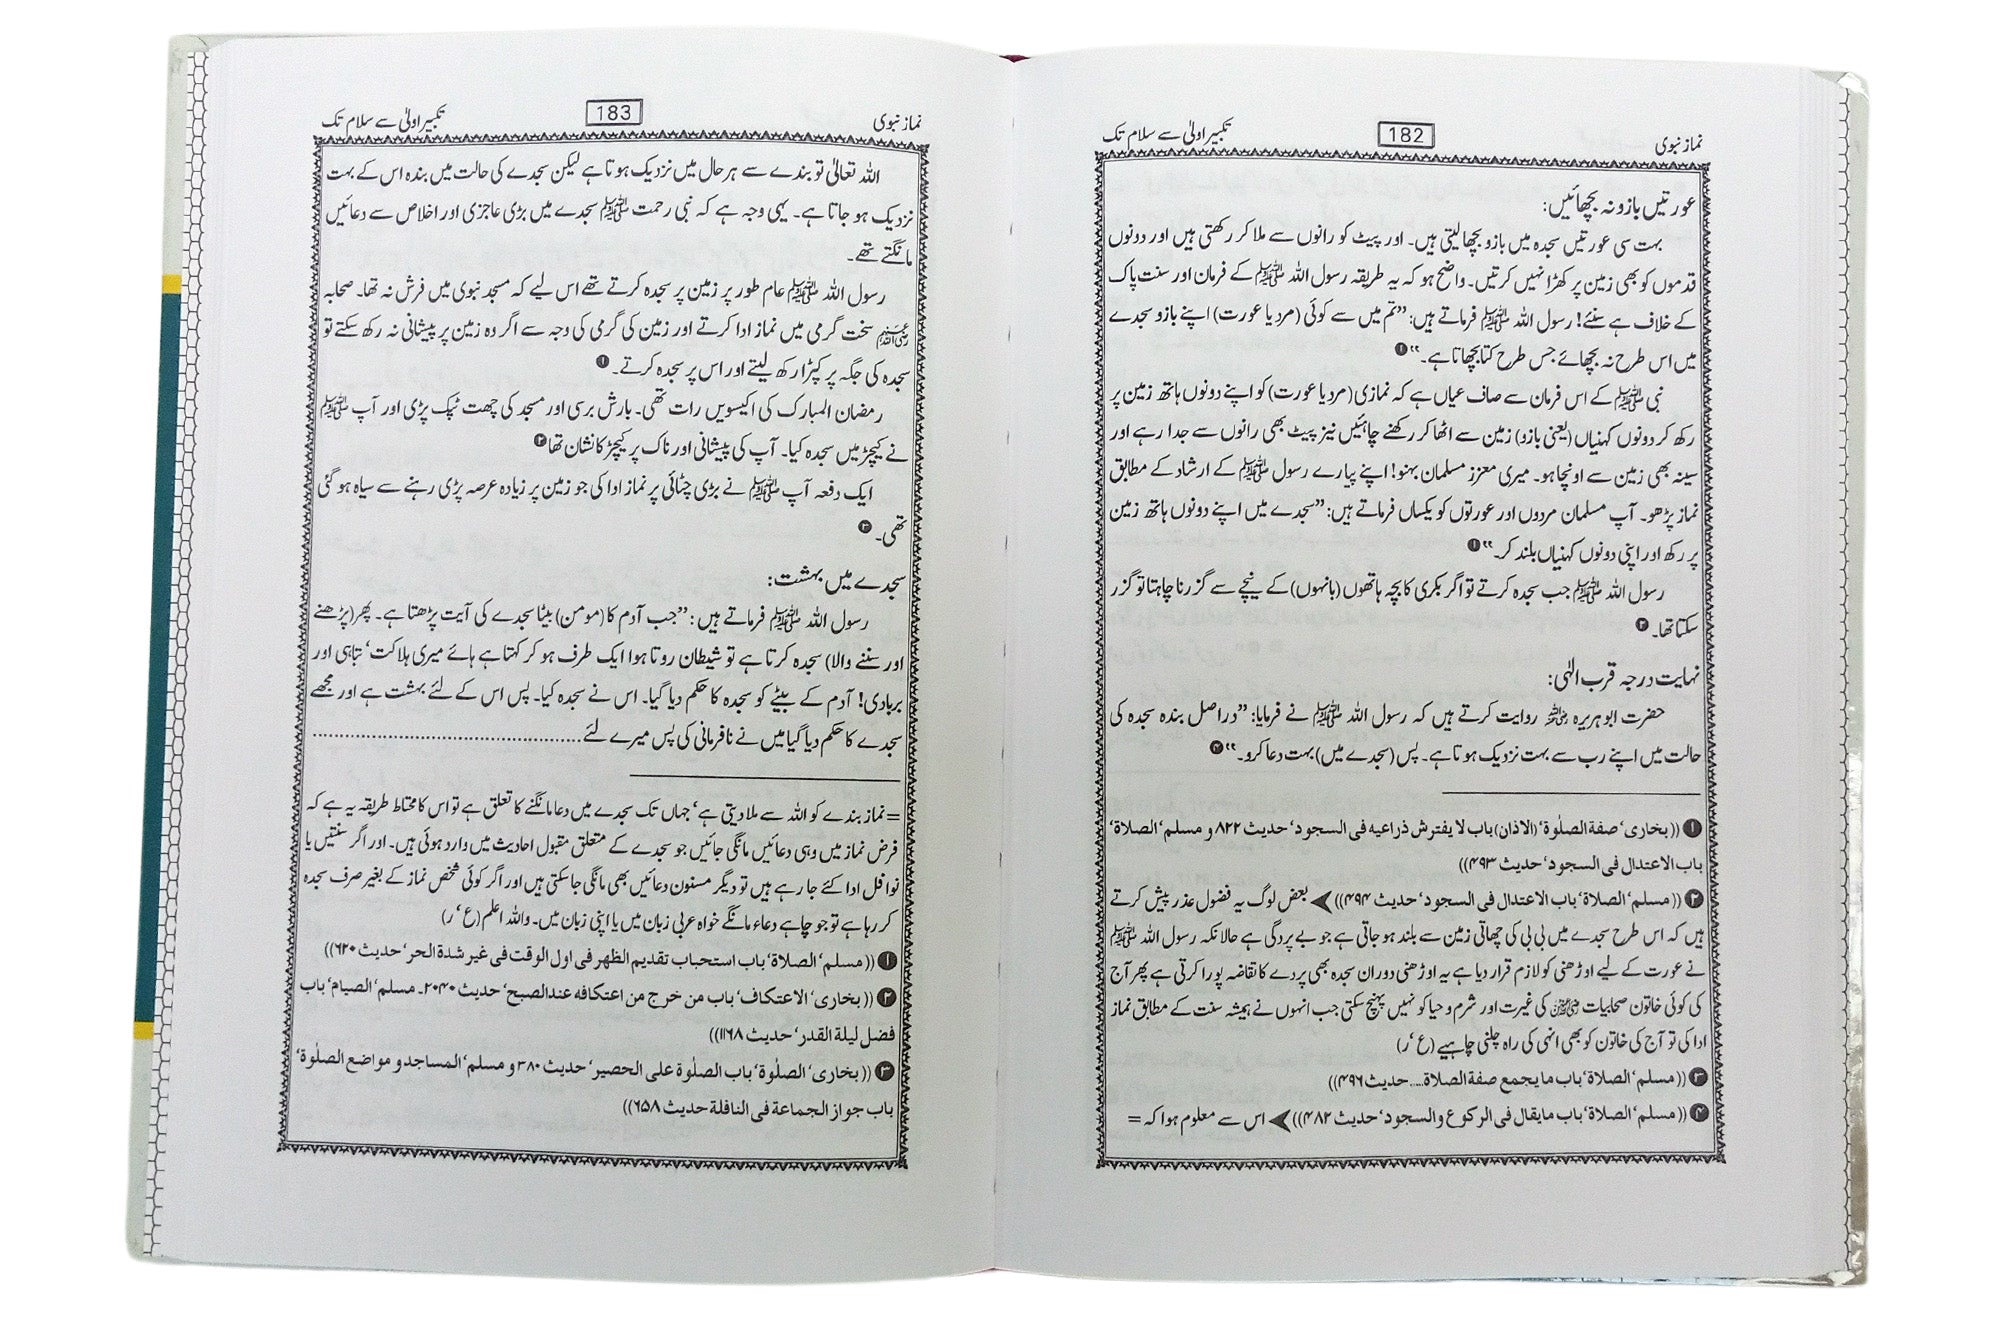 نماز نبوی 182 تکبیر اولیٰ سے سلام تک
عورتیں بازو نہ بچھائیں:
بہت سی عورتیں سجدہ میں بازو بچھا لیتی ہیں۔ اور پیٹ کو رانوں سے ملا کر رکھتی ہیں اور دونوں
قدموں کو بھی زمین پر کھڑا نہیں کرتیں۔ واضح ہو کہ یہ طریقہ رسول اللہ ﷺ کے فرمان اور سنت پاک
کے خلاف ہے سنئے! رسول اللہ ﷺ فرماتے ہیں: ”تم میں سے کوئی (مرد یا عورت) اپنے بازو سجدے
میں اس طرح نہ بچھائے جس طرح کتا بچھاتا ہے۔“ ❶
نبی ﷺ کے اس فرمان سے صاف عیاں ہے کہ نمازی (مرد یا عورت) کو اپنے دونوں ہاتھ زمین پر
رکھ کر دونوں کہنیاں (یعنی بازو) زمین سے اٹھا کر رکھنے چاہئیں نیز پیٹ بھی رانوں سے جدا رہے اور
سینہ بھی زمین سے اونچا ہو۔ میری معزز مسلمان بہنو! اپنے پیارے رسول ﷺ کے ارشاد کے مطابق
نماز پڑھو۔ آپ مسلمان مردوں اور عورتوں کو یکساں فرماتے ہیں: ”سجدے میں اپنے دونوں ہاتھ زمین
پر رکھ اور اپنی دونوں کہنیاں بلند کر۔“ ❶
رسول اللہ ﷺ جب سجدہ کرتے تو اگر بکری کا بچہ ہاتھوں (بانہوں) کے نیچے سے گزرنا چاہتا تو گزر
سکتا تھا۔ ❸
نہایت درجہ قرب الٰہی:
حضرت ابو ہریرہ رضی اللہ عنہ روایت کرتے ہیں کہ رسول اللہ ﷺ نے فرمایا: ”دراصل بندہ سجدہ کی
حالت میں اپنے رب سے بہت نزدیک ہوتا ہے۔ پس (سجدے میں) بہت دعا کرو۔“ ❹
❶ ((بخاری‘ صفۃ الصلوٰۃ‘ (الاذان) باب لا یفترش ذراعیہ فی السجود‘ حدیث ۸۲۲ و مسلم‘ الصلاۃ‘
باب الاعتدال فی السجود‘ حدیث ۴۹۳))
❷ ((مسلم‘ الصلاۃ‘ باب الاعتدال فی السجود‘ حدیث ۴۹۴)) ➤ بعض لوگ یہ فضول عذر پیش کرتے
ہیں کہ اس طرح سجدے میں بی بی کی چھاتی زمین سے بلند ہو جاتی ہے جو بے پردگی ہے حالانکہ رسول اللہ ﷺ
نے عورت کے لیے اوڑھنی کو لازم قرار دیا ہے یہ اوڑھنی دوران سجدہ بھی پردے کا تقاضہ پورا کرتی ہے پھر آج
کی کوئی خاتون صحابیات رضی اللہ عنہن کی غیرت اور شرم و حیا کو نہیں پہنچ سکتی جب انہوں نے ہمیشہ سنت کے مطابق نماز
ادا کی تو آج کی خاتون کو بھی انہی کی راہ چلنی چاہیے (ع‘ ر)
❸ ((مسلم‘ الصلاۃ‘ باب ما یجمع صفۃ الصلاۃ.... حدیث ۴۹۶))
❹ ((مسلم‘ الصلاۃ‘ باب ما یقال فی الرکوع والسجود‘ حدیث ۴۸۲)) ➤ اس سے معلوم ہوا کہ =
نماز نبوی 183 تکبیر اولیٰ سے سلام تک
اللہ تعالیٰ تو بندے سے ہر حال میں نزدیک ہوتا ہے لیکن سجدے کی حالت میں بندہ اس کے بہت
نزدیک ہو جاتا ہے۔ یہی وجہ ہے کہ نبی رحمت ﷺ سجدے میں بڑی عاجزی اور اخلاص سے دعائیں
مانگتے تھے۔
رسول اللہ ﷺ عام طور پر زمین پر سجدہ کرتے تھے اس لیے کہ مسجد نبوی میں فرش نہ تھا۔ صحابہ
رضی اللہ عنہم سخت گرمی میں نماز ادا کرتے اور زمین کی گرمی کی وجہ سے اگر وہ زمین پر پیشانی نہ رکھ سکتے تو
سجدہ کی جگہ پر کپڑا رکھ لیتے اور اس پر سجدہ کرتے۔ ❶
رمضان المبارک کی اکیسویں رات تھی۔ بارش برسی اور مسجد کی چھت ٹپک پڑی اور آپ ﷺ
نے کیچڑ میں سجدہ کیا۔ آپ کی پیشانی اور ناک پر کیچڑ کا نشان تھا ❷
ایک دفعہ آپ ﷺ نے بڑی چٹائی پر نماز ادا کی جو زمین پر زیادہ عرصہ پڑی رہنے سے سیاہ ہو گئی
تھی۔ ❸
سجدے میں بہشت:
رسول اللہ ﷺ فرماتے ہیں: ”جب آدم کا (مومن) بیٹا سجدے کی آیت پڑھتا ہے۔ پھر (پڑھنے
اور سننے والا) سجدہ کرتا ہے تو شیطان روتا ہوا ایک طرف ہو کر کہتا ہے ہائے میری ہلاکت‘ تباہی اور
بربادی! آدم کے بیٹے کو سجدہ کا حکم دیا گیا۔ اس نے سجدہ کیا۔ پس اس کے لئے بہشت ہے اور مجھے
سجدے کا حکم دیا گیا میں نے نافرمانی کی پس میرے لئے..............................
= نماز بندے کو اللہ سے ملا دیتی ہے‘ جہاں تک سجدے میں دعا مانگنے کا تعلق ہے تو اس کا محتاط طریقہ یہ ہے کہ
فرض نماز میں وہی دعائیں مانگی جائیں جو سجدے کے متعلق مقبول احادیث میں وارد ہوئی ہیں۔ اور اگر سنتیں یا
نوافل ادا کئے جا رہے ہیں تو دیگر مسنون دعائیں بھی مانگی جا سکتی ہیں اور اگر کوئی شخص نماز کے بغیر صرف سجدہ
کر رہا ہے تو جو چاہے دعاء مانگے خواہ عربی زبان میں یا اپنی زبان میں۔ واللہ اعلم (ع‘ ر)
❶ ((مسلم‘ الصلاۃ‘ باب استحباب تقدیم الظہر فی اول الوقت فی غیر شدۃ الحر‘ حدیث ۶۲۰))
❷ ((بخاری‘ الاعتکاف‘ باب من خرج من اعتکافہ عند الصبح‘ حدیث ۲۰۴۰۔ مسلم‘ الصیام‘ باب
فضل لیلۃ القدر‘ حدیث ۱۱۶۸))
❸ ((بخاری‘ الصلٰوۃ‘ باب الصلٰوۃ علی الحصیر‘ حدیث ۳۸۰ و مسلم‘ المساجد و مواضع الصلٰوۃ‘
باب جواز الجماعۃ فی النافلۃ حدیث ۶۵۸))